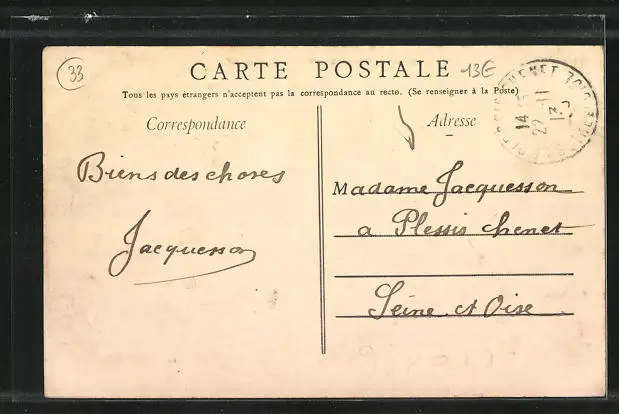 33
CARTE POSTALE
13€
Tous les pays étrangers n'acceptent pas la correspondance au recto. (Se renseigner à la Poste)
Correspondance
Adresse
Biens des choses
Jacquesson
Madame Jacquesson
a Plessis chenet
Seine et Oise
14
22